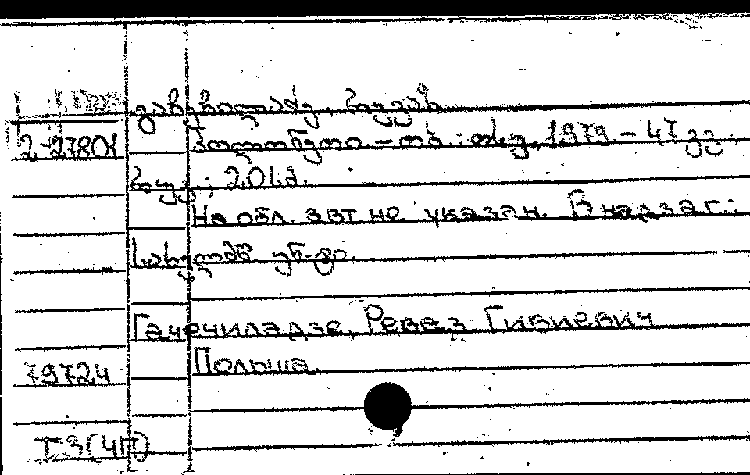 გაჩეჩილაძე, რევაზ
2-27801 პოლონეთი – თბ.: თსუ, 1979 – 47 გვ.;
რუკ.; 20 სმ.
На обл. авт не указан. В надзаг.:
სახელმწ. უნ-ტი.
Гачечиладзе, Реваз Гивиевич
Польша.
79724
Т 3(4П)